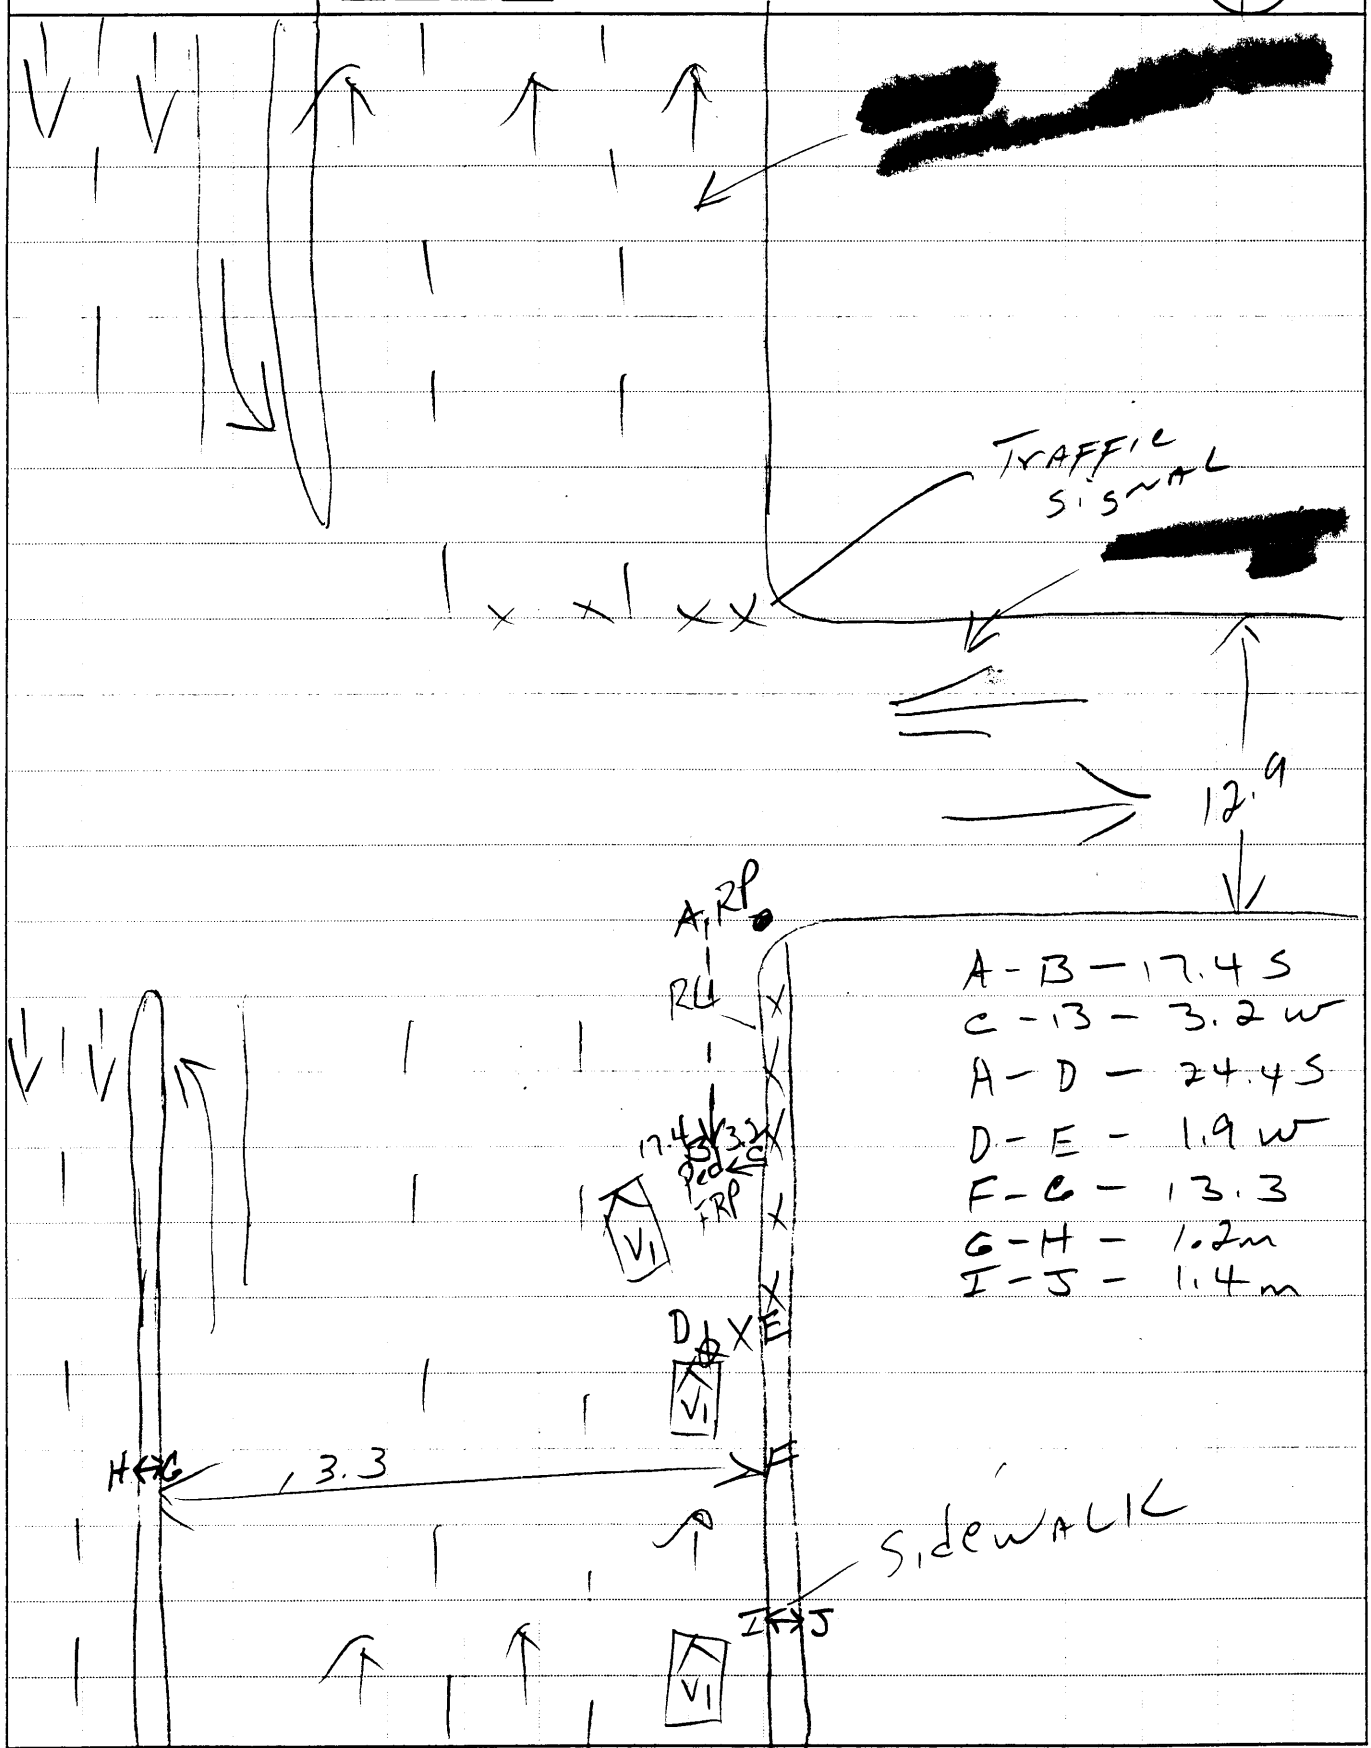 TrAFFic
SigNAL
12.9
A, RP
RL
A - B - 17.4 S
C - B - 3.2 w
A - D - 24.4 S
D - E - 1.9 w
F - G - 13.3
G - H - 1.2m
I - J - 1.4m
17.4 B 3.2 C
Ped
FRP
V1
D X E
V1
F
H G 13.3
SidewALK
I J
V1